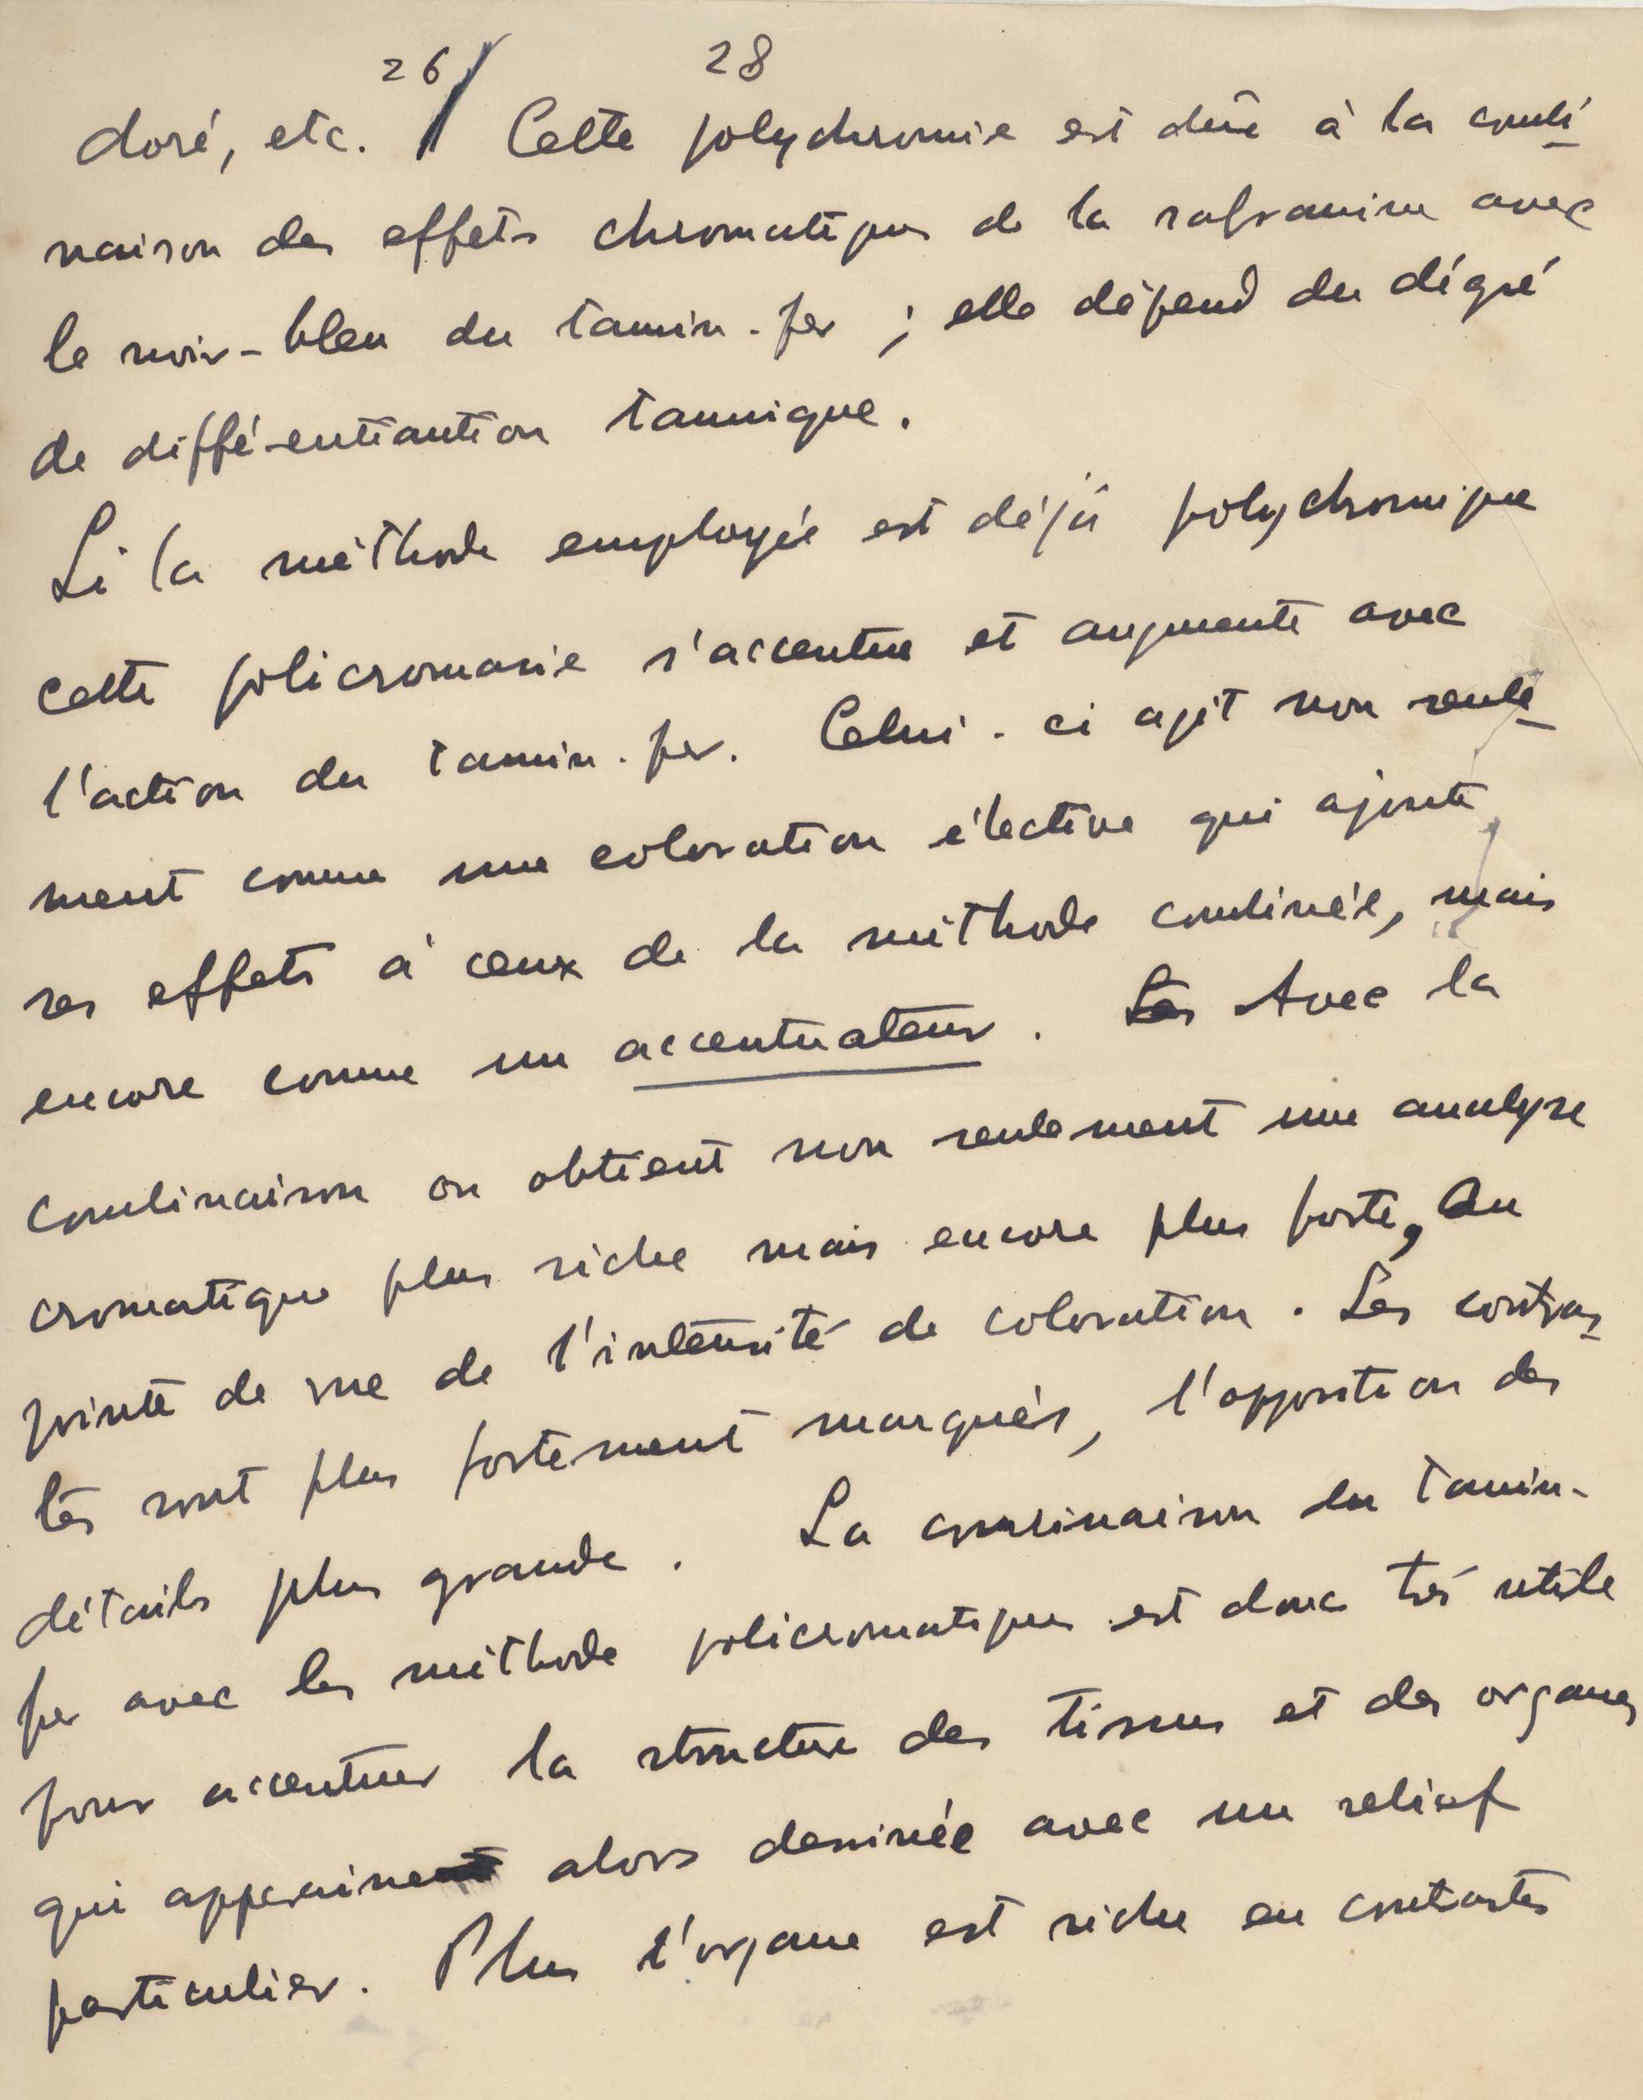 26 28
doré, etc. Cette polychromie est dûe à la combi-
naison des effets chromatiques de la safranine avec
le noir-bleu du tannin-fer ; elle dépend du dégré
de différentiantion tannique.
Si la méthode employée est déjà polychromique
cette policromasie s'accentue et augmente avec
l'action du tannin-fer. Celui-ci agit non seule-
ment comme une coloration élective qui ajoute
ses effets à ceux de la méthode combinée, mais
encore comme un accentuateur. Les Avec la
combinaison on obtient non seulement une analyse
cromatique plus riche mais encore plus forte, au
pointe de vue de l'intensité de coloration. Les contras-
tes sont plus fortement marqués, l'opposition des
détails plus grande. La combinaison du tannin-
fer avec les méthode policromatiques est donc trés utile
pour accentuer la structure des tissus et des organes
qui apparaissent alors dessinée avec un relief
particulier. Plus l'organe est riche en contastes